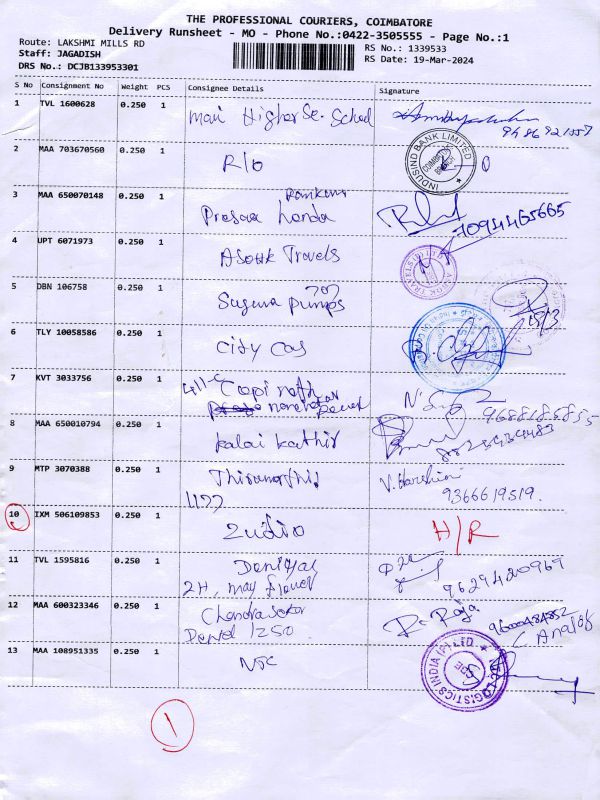 THE PROFESSIONAL COURIERS, COIMBATORE
Delivery Runsheet - MO - Phone No.:0422-3505555 - Page No.:1
Route: LAKSHMI MILLS RD
Staff: JAGADISH
DRS No.: DCJB133953301
RS No.: 1339533
RS Date: 19-Mar-2024
S No Consignment No Weight PCS Consignee Details Signature
1 TVL 1600628 0.250 1 Mani Higher Se. School
9486921557
2 MAA 703670560 0.250 1 Rio
INDUSIND BANK LIMITED
COIMBATORE
3 MAA 650070148 0.250 1
Prasaa honda
7094465665
4 UPT 6071973 0.250 1 Asouk Travels
5 DBN 106758 0.250 1 707
Suguna Pumps
15/3
6 TLY 10058586 0.250 1 City Cas
7 KVT 3033756 0.250 1 Copi nath
8 MAA 650010794 0.250 1 Kalai Kathir
9 MTP 3070388 0.250 1
V. Harshini
9366619519.
10 IXM 506109853 0.250 1 Zudio H/R
11 TVL 1595816 0.250 1
2H, may flower
9629420969
12 MAA 600323346 0.250 1 Chandrasekar
1250.
R. Raja
13 MAA 108951335 0.250 1
LOGISTICS INDIA (P) LTD.
1